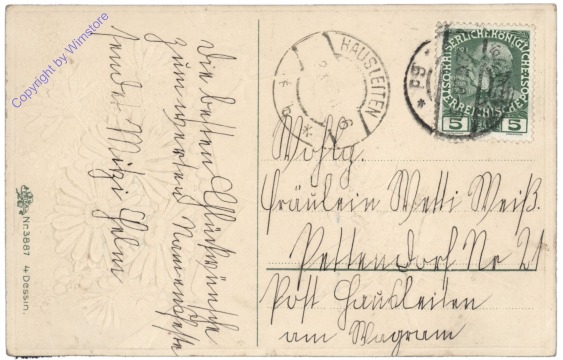 Die besten Glückwünsche
zum werten Namensfeste
sendet Mitzi Helm
Wohlg.
Fräulein Wetti Weiß.
Pettendorf No 21
Post Hausleiten
am Wagram
HAUSLEITEN
KAISERLICHE KÖNIGLICHE
ÖSTERREICHISCHE POST
5 5
Nr. 3887 4 Dessin.
Copyright by Wimstore